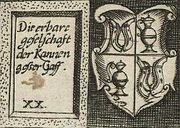 Die erbare
geselschaft
der Kannen
gießer Gaff.
XX.